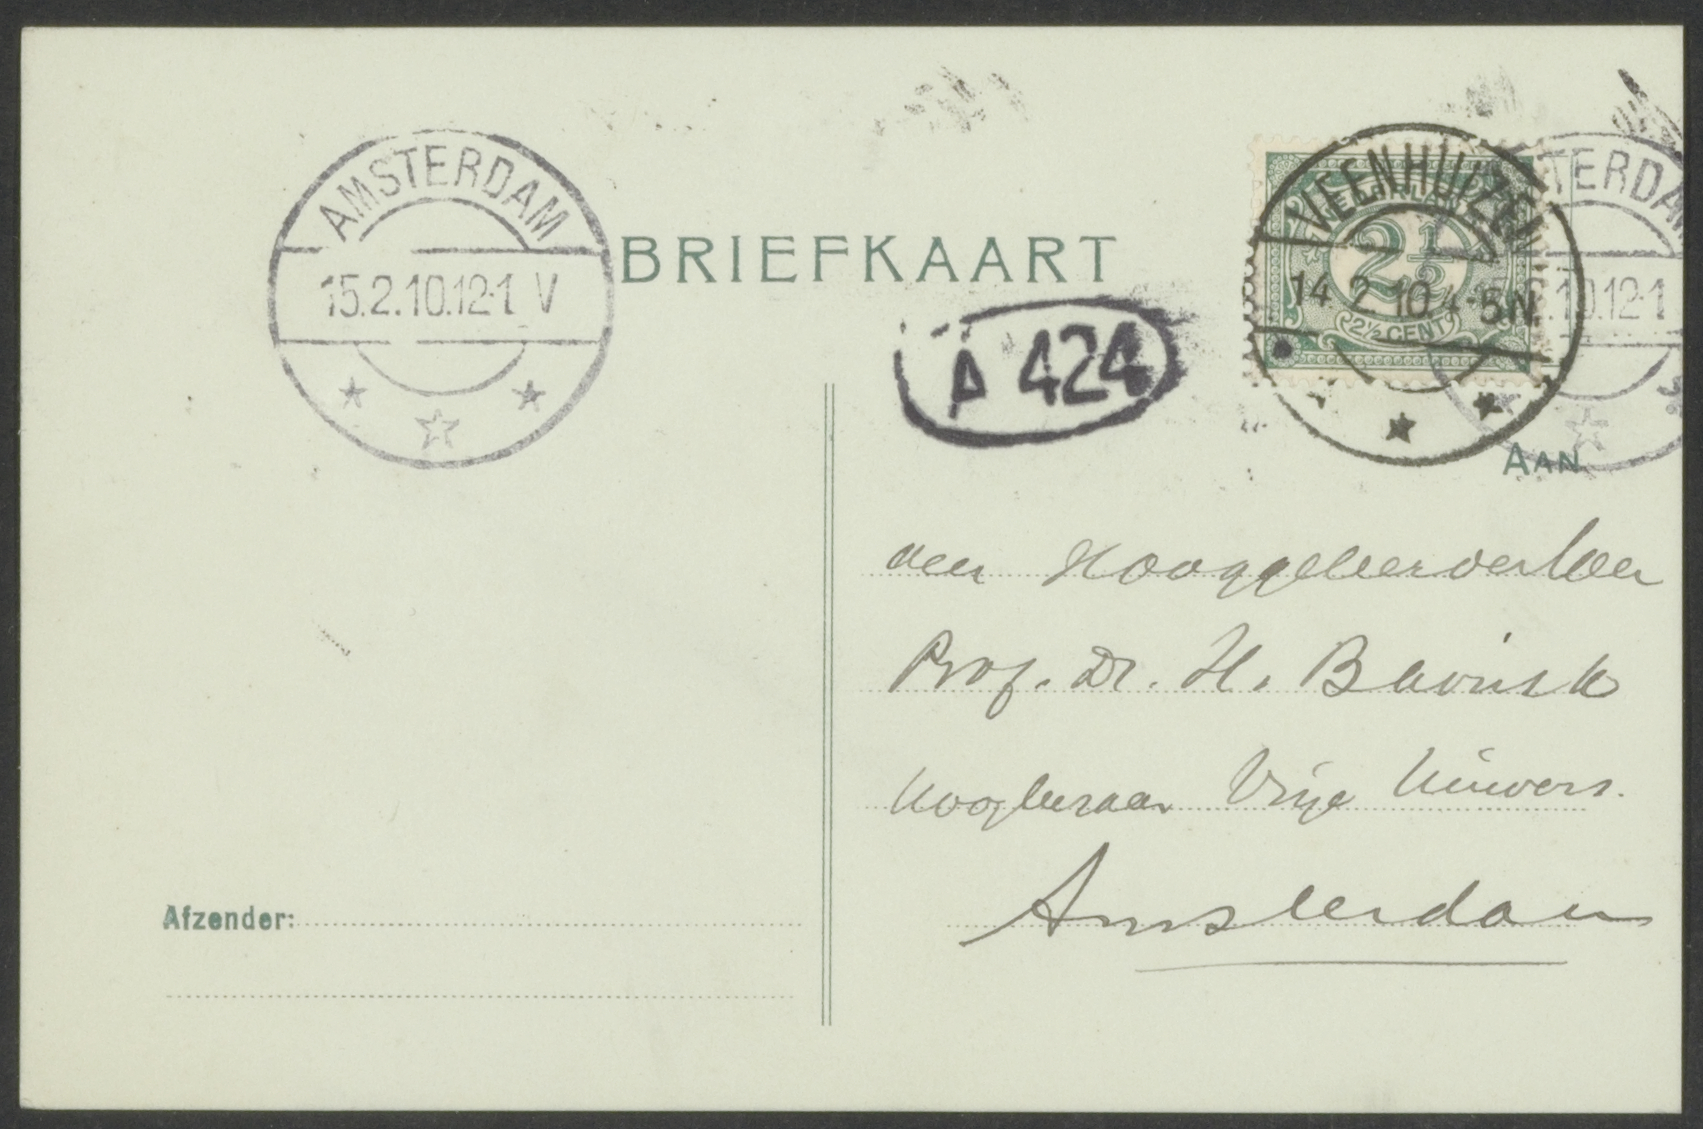 AMSTERDAM
15.2.10.12-1 V
BRIEFKAART
A 424
NEDERLAND
2½
2½ CENT
VEENHUIZEN
14 2 10 4-5N.
TERDA
.10.12-1
AAN
den Hooggeleerden Heer
Prof. Dr. H. Bavinck
Hoogleeraar Vrije Univers.
Amsterdam
Afzender: